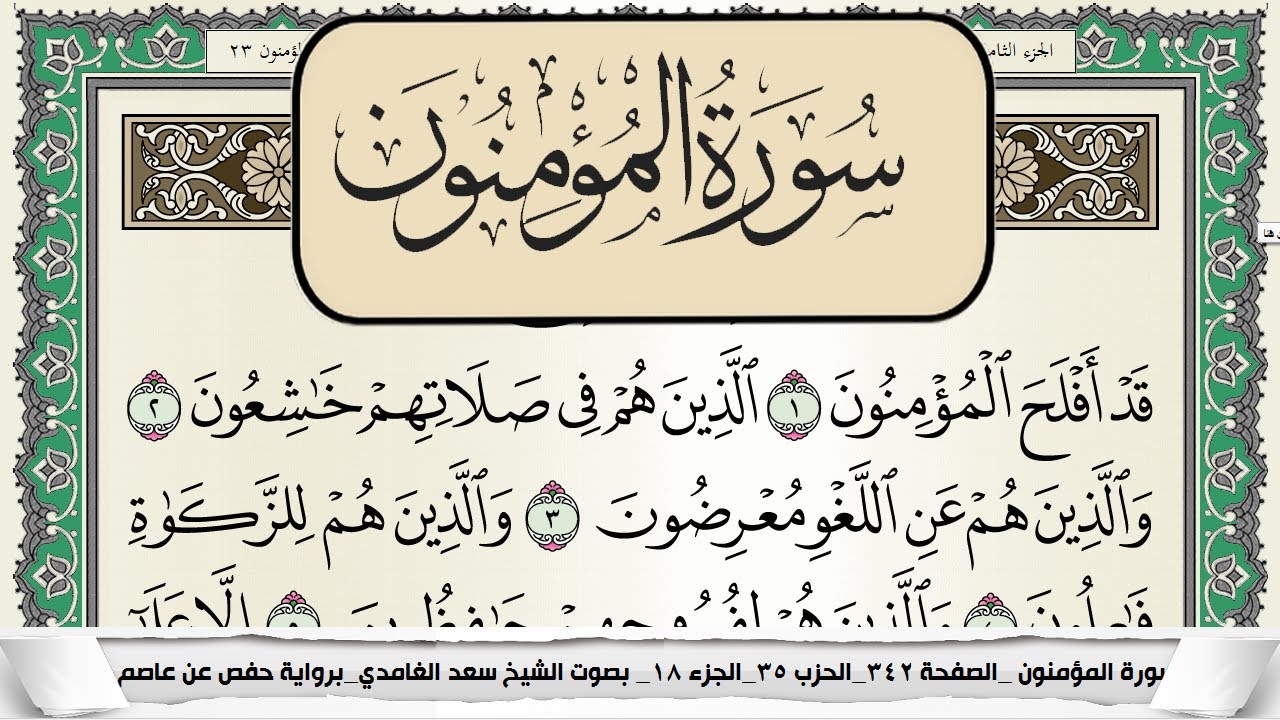 الجزء الثامن
المؤمنون ٢٣
سُورَةُ المُؤْمِنُونَ
قَدۡ أَفۡلَحَ ٱلۡمُؤۡمِنُونَ ١ ٱلَّذِينَ هُمۡ فِي صَلَاتِهِمۡ خَٰشِعُونَ ٢
وَٱلَّذِينَ هُمۡ عَنِ ٱللَّغۡوِ مُعۡرِضُونَ ٣ وَٱلَّذِينَ هُمۡ لِلزَّكَوٰةِ
فَٰعِلُونَ ٤ وَٱلَّذِينَ هُمۡ لِفُرُوجِهِمۡ حَٰفِظُونَ ٥ إِلَّا عَلَىٰٓ
سورة المؤمنون _الصفحة ٣٤٢_الحزب ٣٥_الجزء ١٨_ بصوت الشيخ سعد الغامدي_برواية حفص عن عاصم